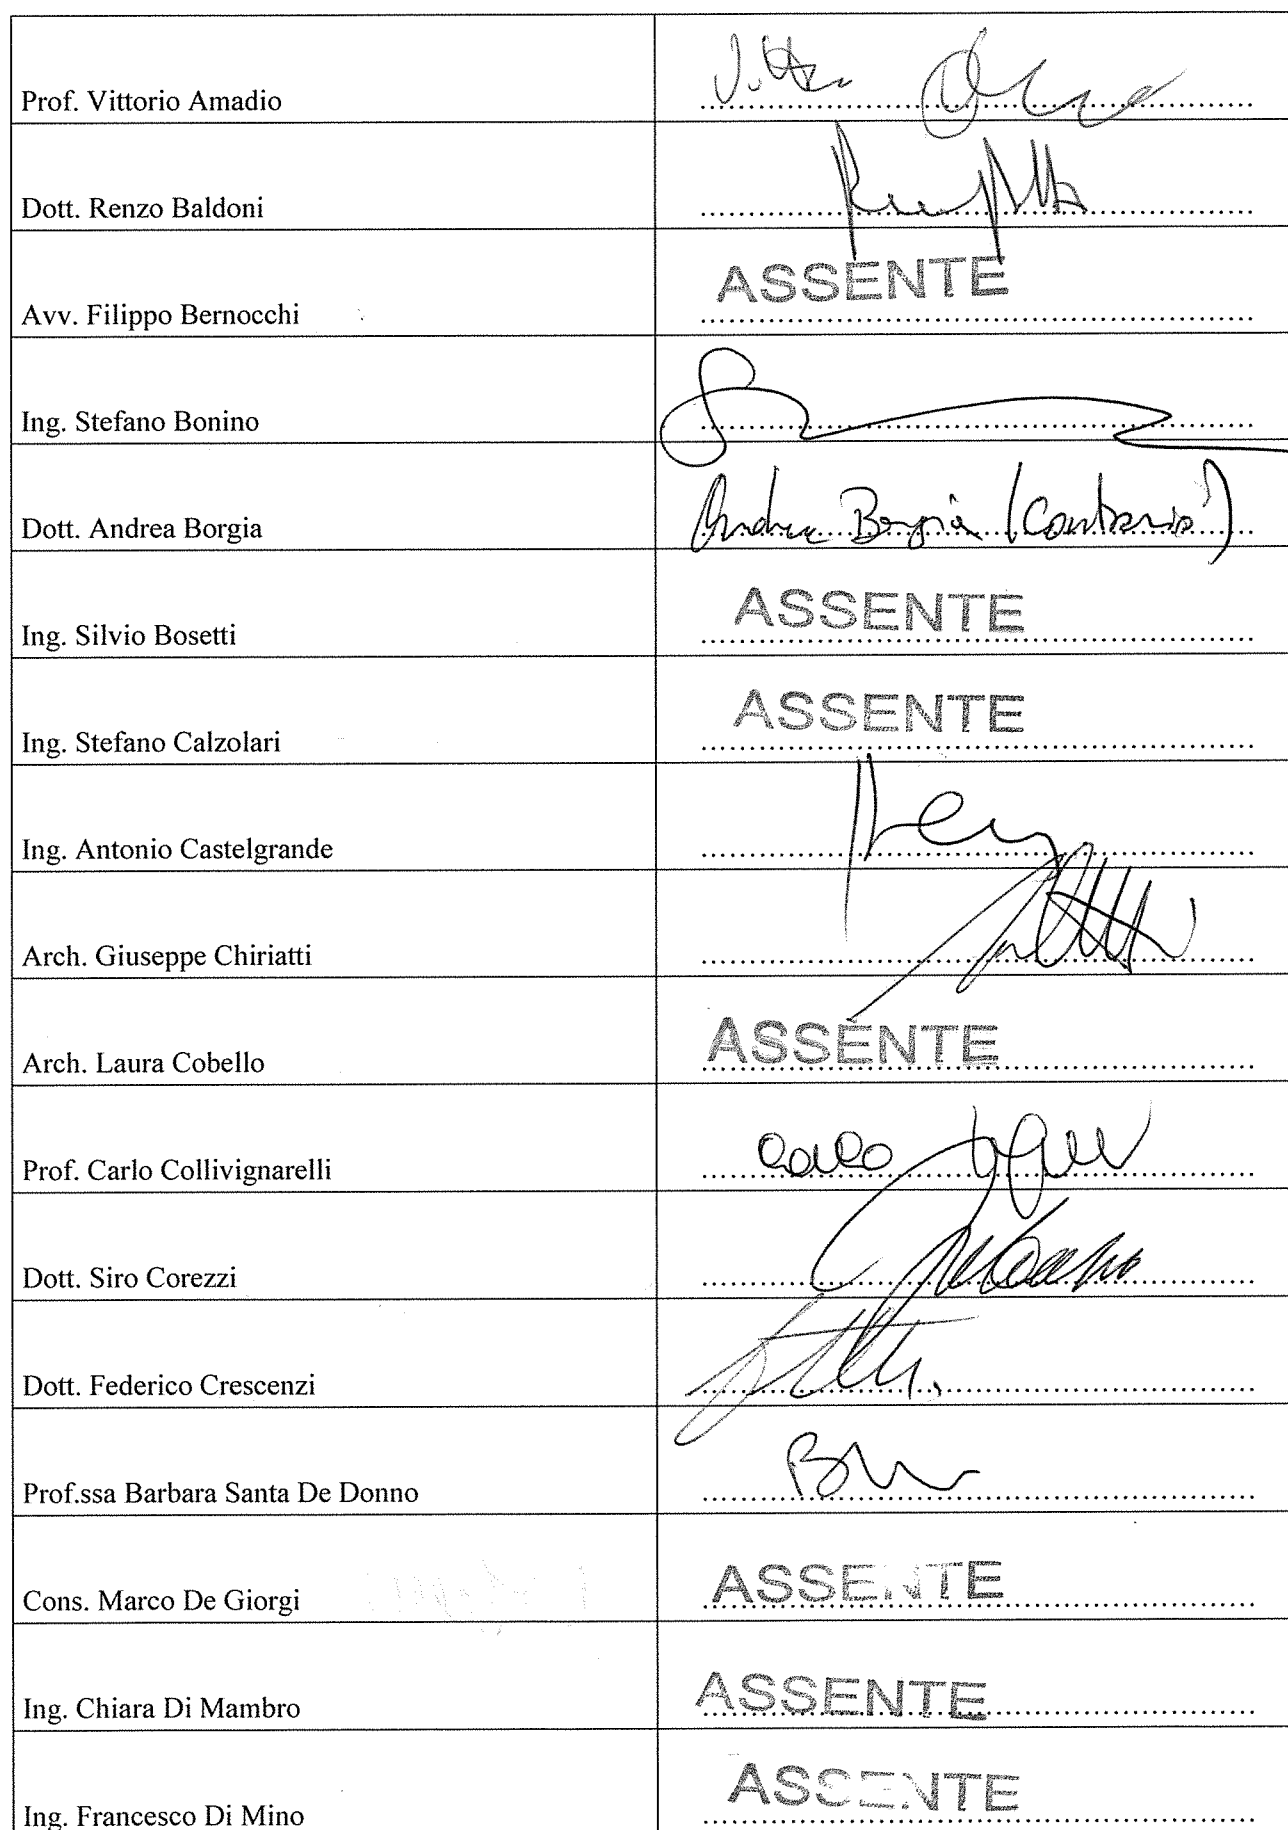 Prof. Vittorio Amadio
Dott. Renzo Baldoni
Avv. Filippo Bernocchi ASSENTE
Ing. Stefano Bonino
Dott. Andrea Borgia Andrea Borgia (contrario)
Ing. Silvio Bosetti ASSENTE
Ing. Stefano Calzolari ASSENTE
Ing. Antonio Castelgrande
Arch. Giuseppe Chiriatti
Arch. Laura Cobello ASSENTE
Prof. Carlo Collivignarelli
Dott. Siro Corezzi
Dott. Federico Crescenzi
Prof.ssa Barbara Santa De Donno
Cons. Marco De Giorgi ASSENTE
Ing. Chiara Di Mambro ASSENTE
Ing. Francesco Di Mino ASSENTE